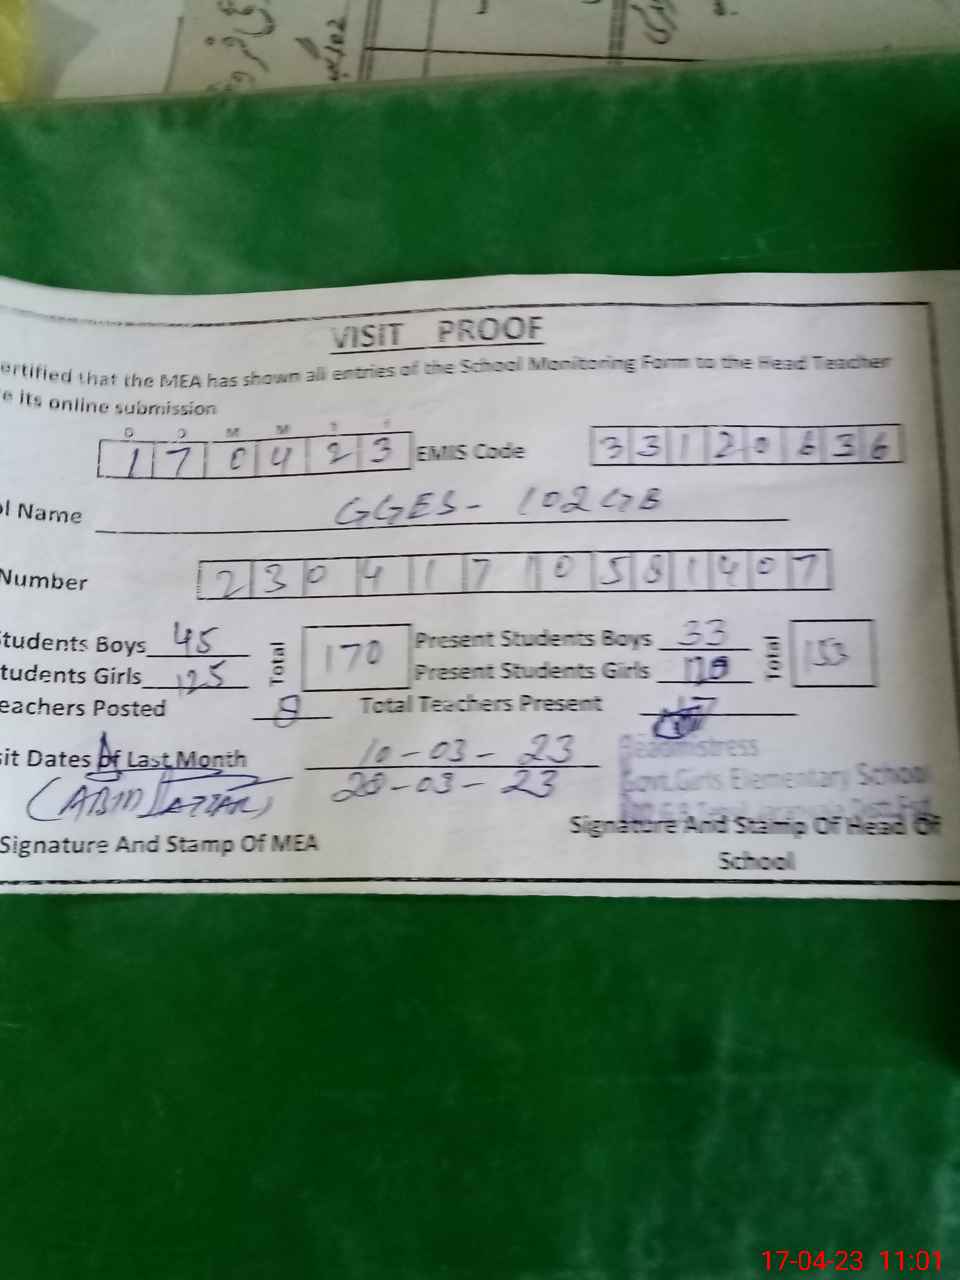 VISIT PROOF
ertified that the MEA has shown all entries of the School Monitoring Form to the Head Teacher
e its online submission
D D M M Y Y
1 7 0 4 2 3 EMIS Code 3 3 1 2 0 6 3 6
ol Name GGES- 102 GB
Number 2 3 0 4 1 7 1 0 5 8 1 4 0 7
tudents Boys 45 Total 170 Present Students Boys 33 Total 153
tudents Girls 125 Present Students Girls 120
eachers Posted 8 Total Teachers Present
sit Dates of Last Month 10-03-23
20-03-23
Headmistress
Govt.Girls Elementary School
Signature And Stamp Of MEA
Signature And Stamp Of Head Of
School
17-04-23 11:01